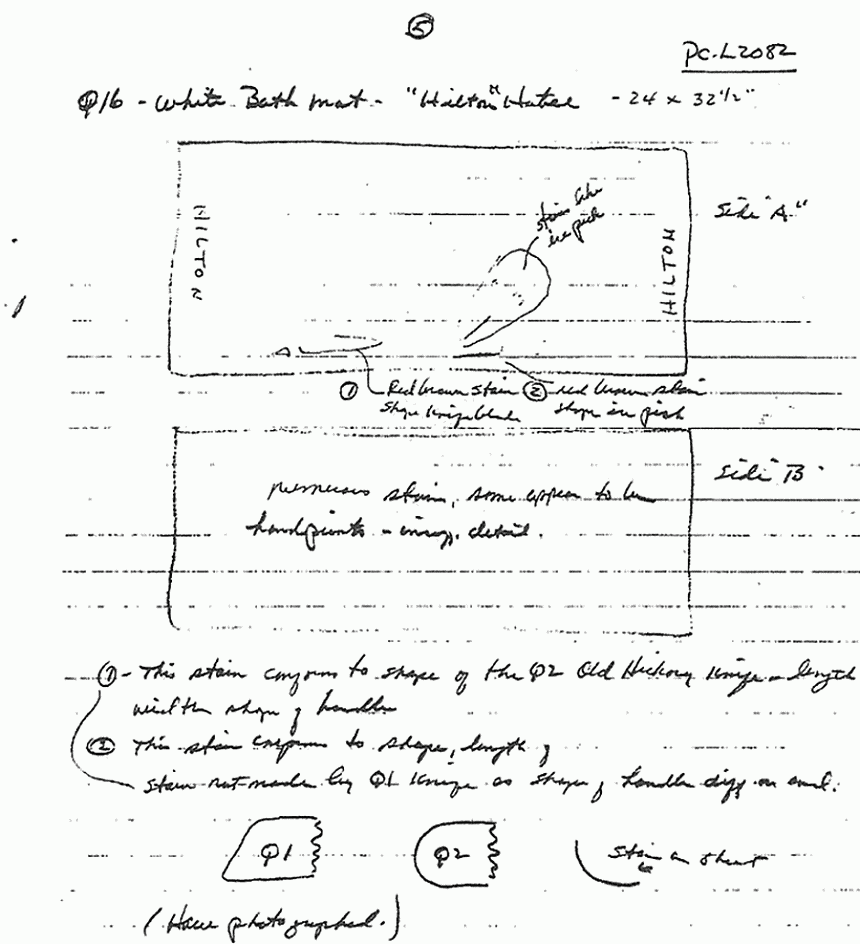 5
PC-L2082
Q16 - White Bath mat - "Hilton" Hotel - 24 x 32 1/2"
Side "A"
HILTON
stain like
ice pick
HILTON
① Red brown stain
shape knife blade
② red brown stain
shape ice pick
Side B
numerous stain, some appear to be
handprints - insuff. detail.
① - This stain conforms to shape of the Q2 Old Hickory Knife - length
width shape of handle
② This stain conforms to shape, length of
stain not made by Q1 Knife as shape of handle diff on end.
Q1
Q2
Stain on sheet
(Have photographed.)